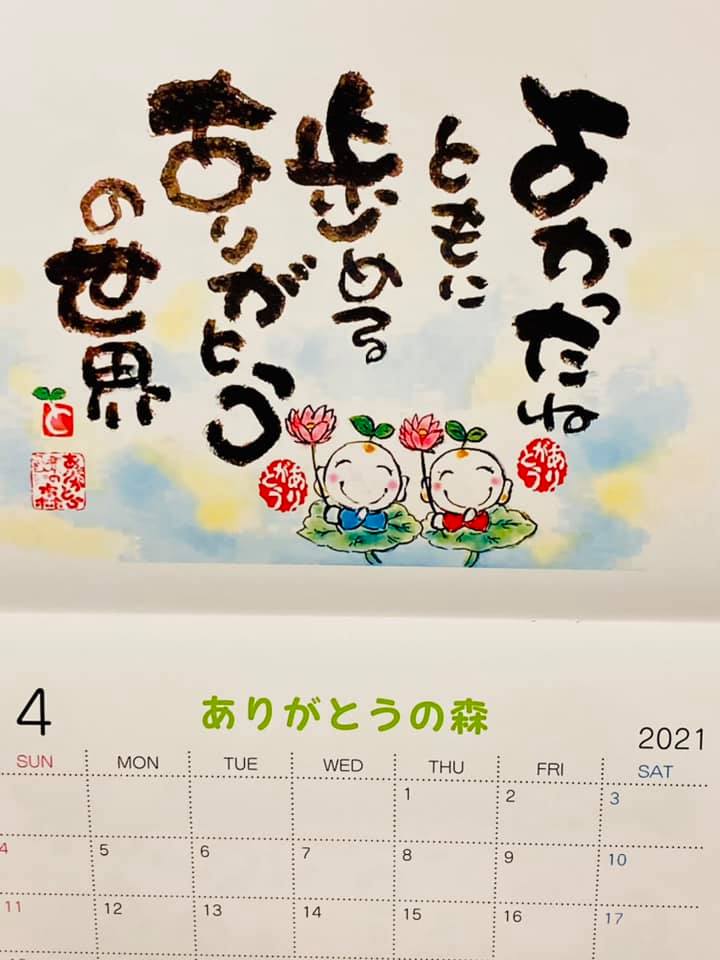 よかったね
ともに
歩める
ありがとう
の世界
ありがとう
ありがとう
と
ありがとうの森
4
ありがとうの森
2021
SUN MON TUE WED THU FRI SAT
1 2 3
4 5 6 7 8 9 10
11 12 13 14 15 16 17